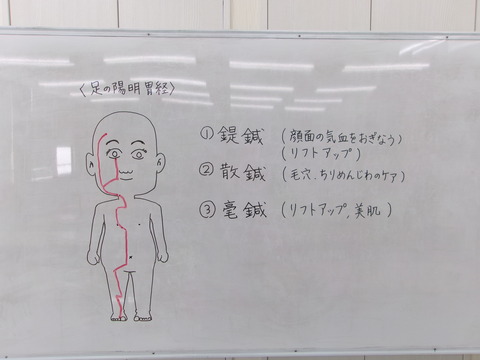 〈足の陽明胃経〉
① 鍉鍼 (顔面の気血をおぎなう)
(リフトアップ)
② 散鍼 (毛穴、ちりめんじわのケア)
③ 毫鍼 (リフトアップ、美肌)